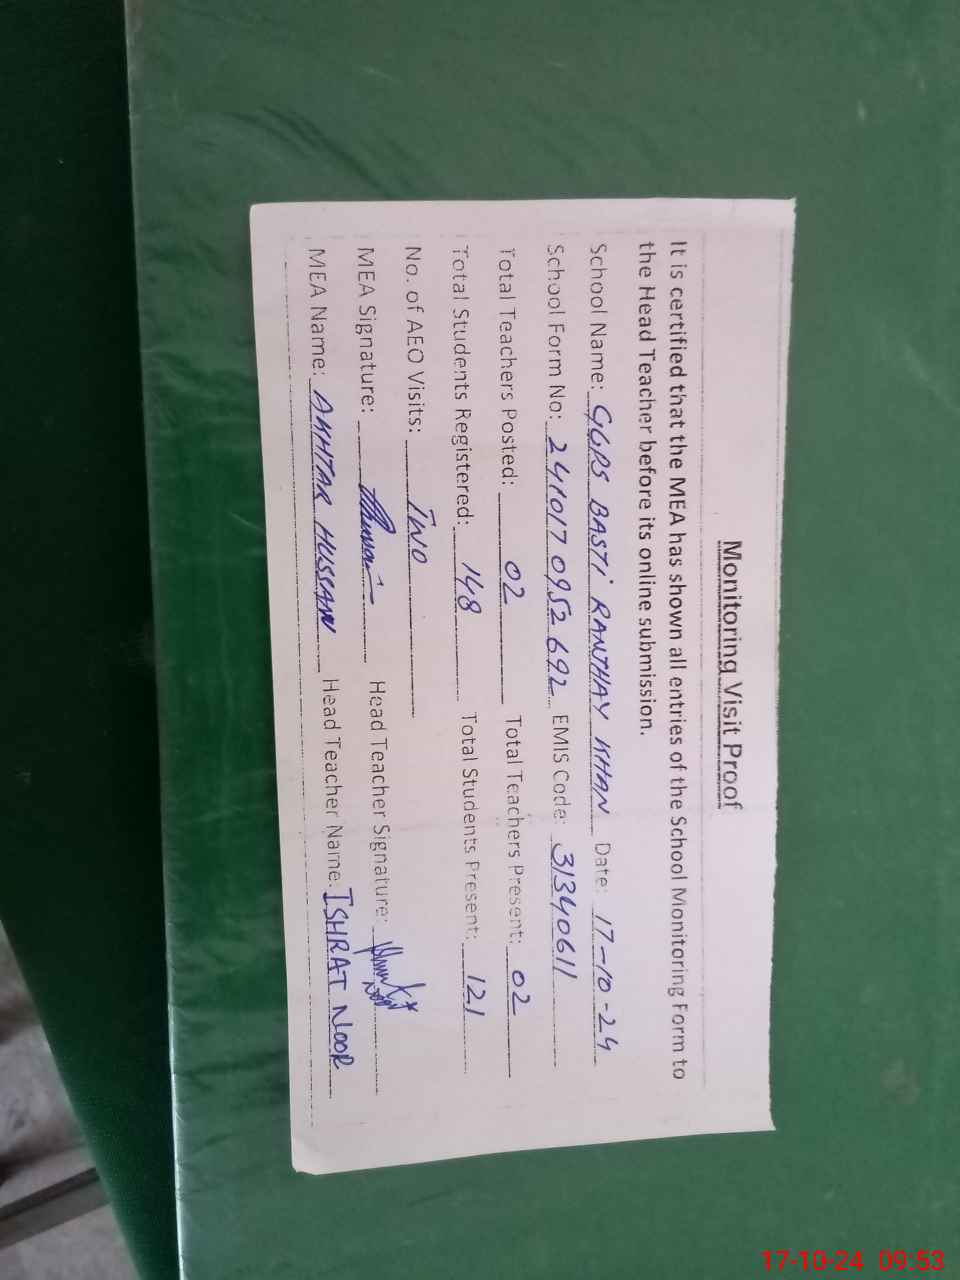 Monitoring Visit Proof
It is certified that the MEA has shown all entries of the School Monitoring Form to
the Head Teacher before its online submission.
School Name: GGPS BASTI RANJHAY KHAN Date: 17-10-24
School Form No: 241017 0952 692 EMIS Code: 31340611
Total Teachers Posted: 02 Total Teachers Present: 02
Total Students Registered: 148 Total Students Present: 121
No. of AEO Visits: TWO
MEA Signature: Head Teacher Signature:
MEA Name: AKHTAR HUSSAIN Head Teacher Name: ISHRAT NOOR
17-10-24 09:53